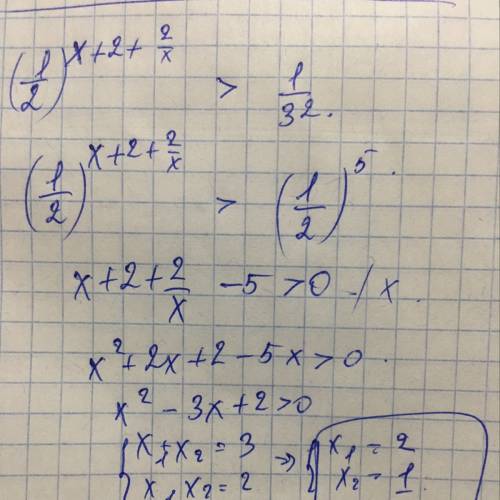 (1/2)^(x+2+2/x) > 1/32.
(1/2)^(x+2+2/x) > (1/2)^5.
x+2+2/x -5 >0 -/x.
x²+2x+2-5x>0.
x²-3x+2>0
{x₁+x₂=3 => {x₁=2
x₁x₂=2 x₂=1